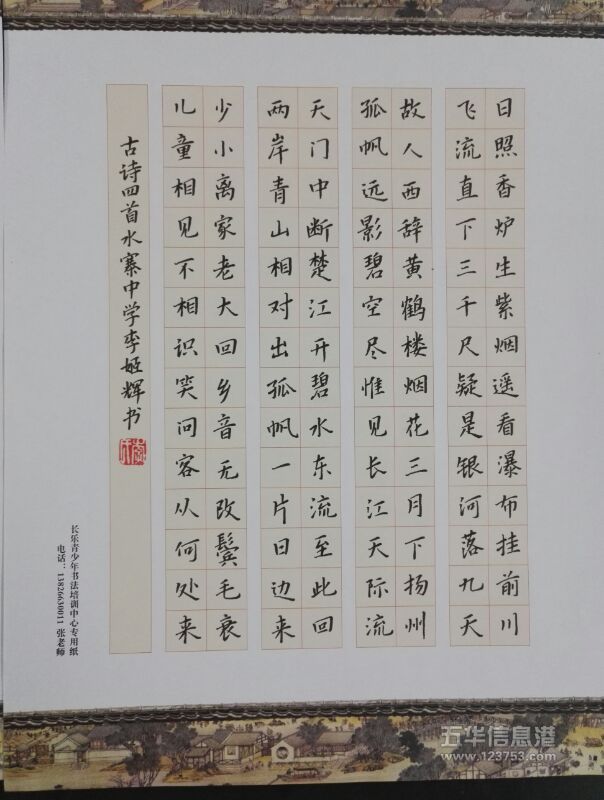 日照香炉生紫烟遥看瀑布挂前川
飞流直下三千尺疑是银河落九天
故人西辞黄鹤楼烟花三月下扬州
孤帆远影碧空尽惟见长江天际流
天门中断楚江开碧水东流至此回
两岸青山相对出孤帆一片日边来
少小离家老大回乡音无改鬓毛衰
儿童相见不相识笑问客从何处来
古诗四首水寨中学李姬辉书
长乐青少年书法培训中心专用纸
电话：13826630011 张老师
五华信息港
www.123753.com